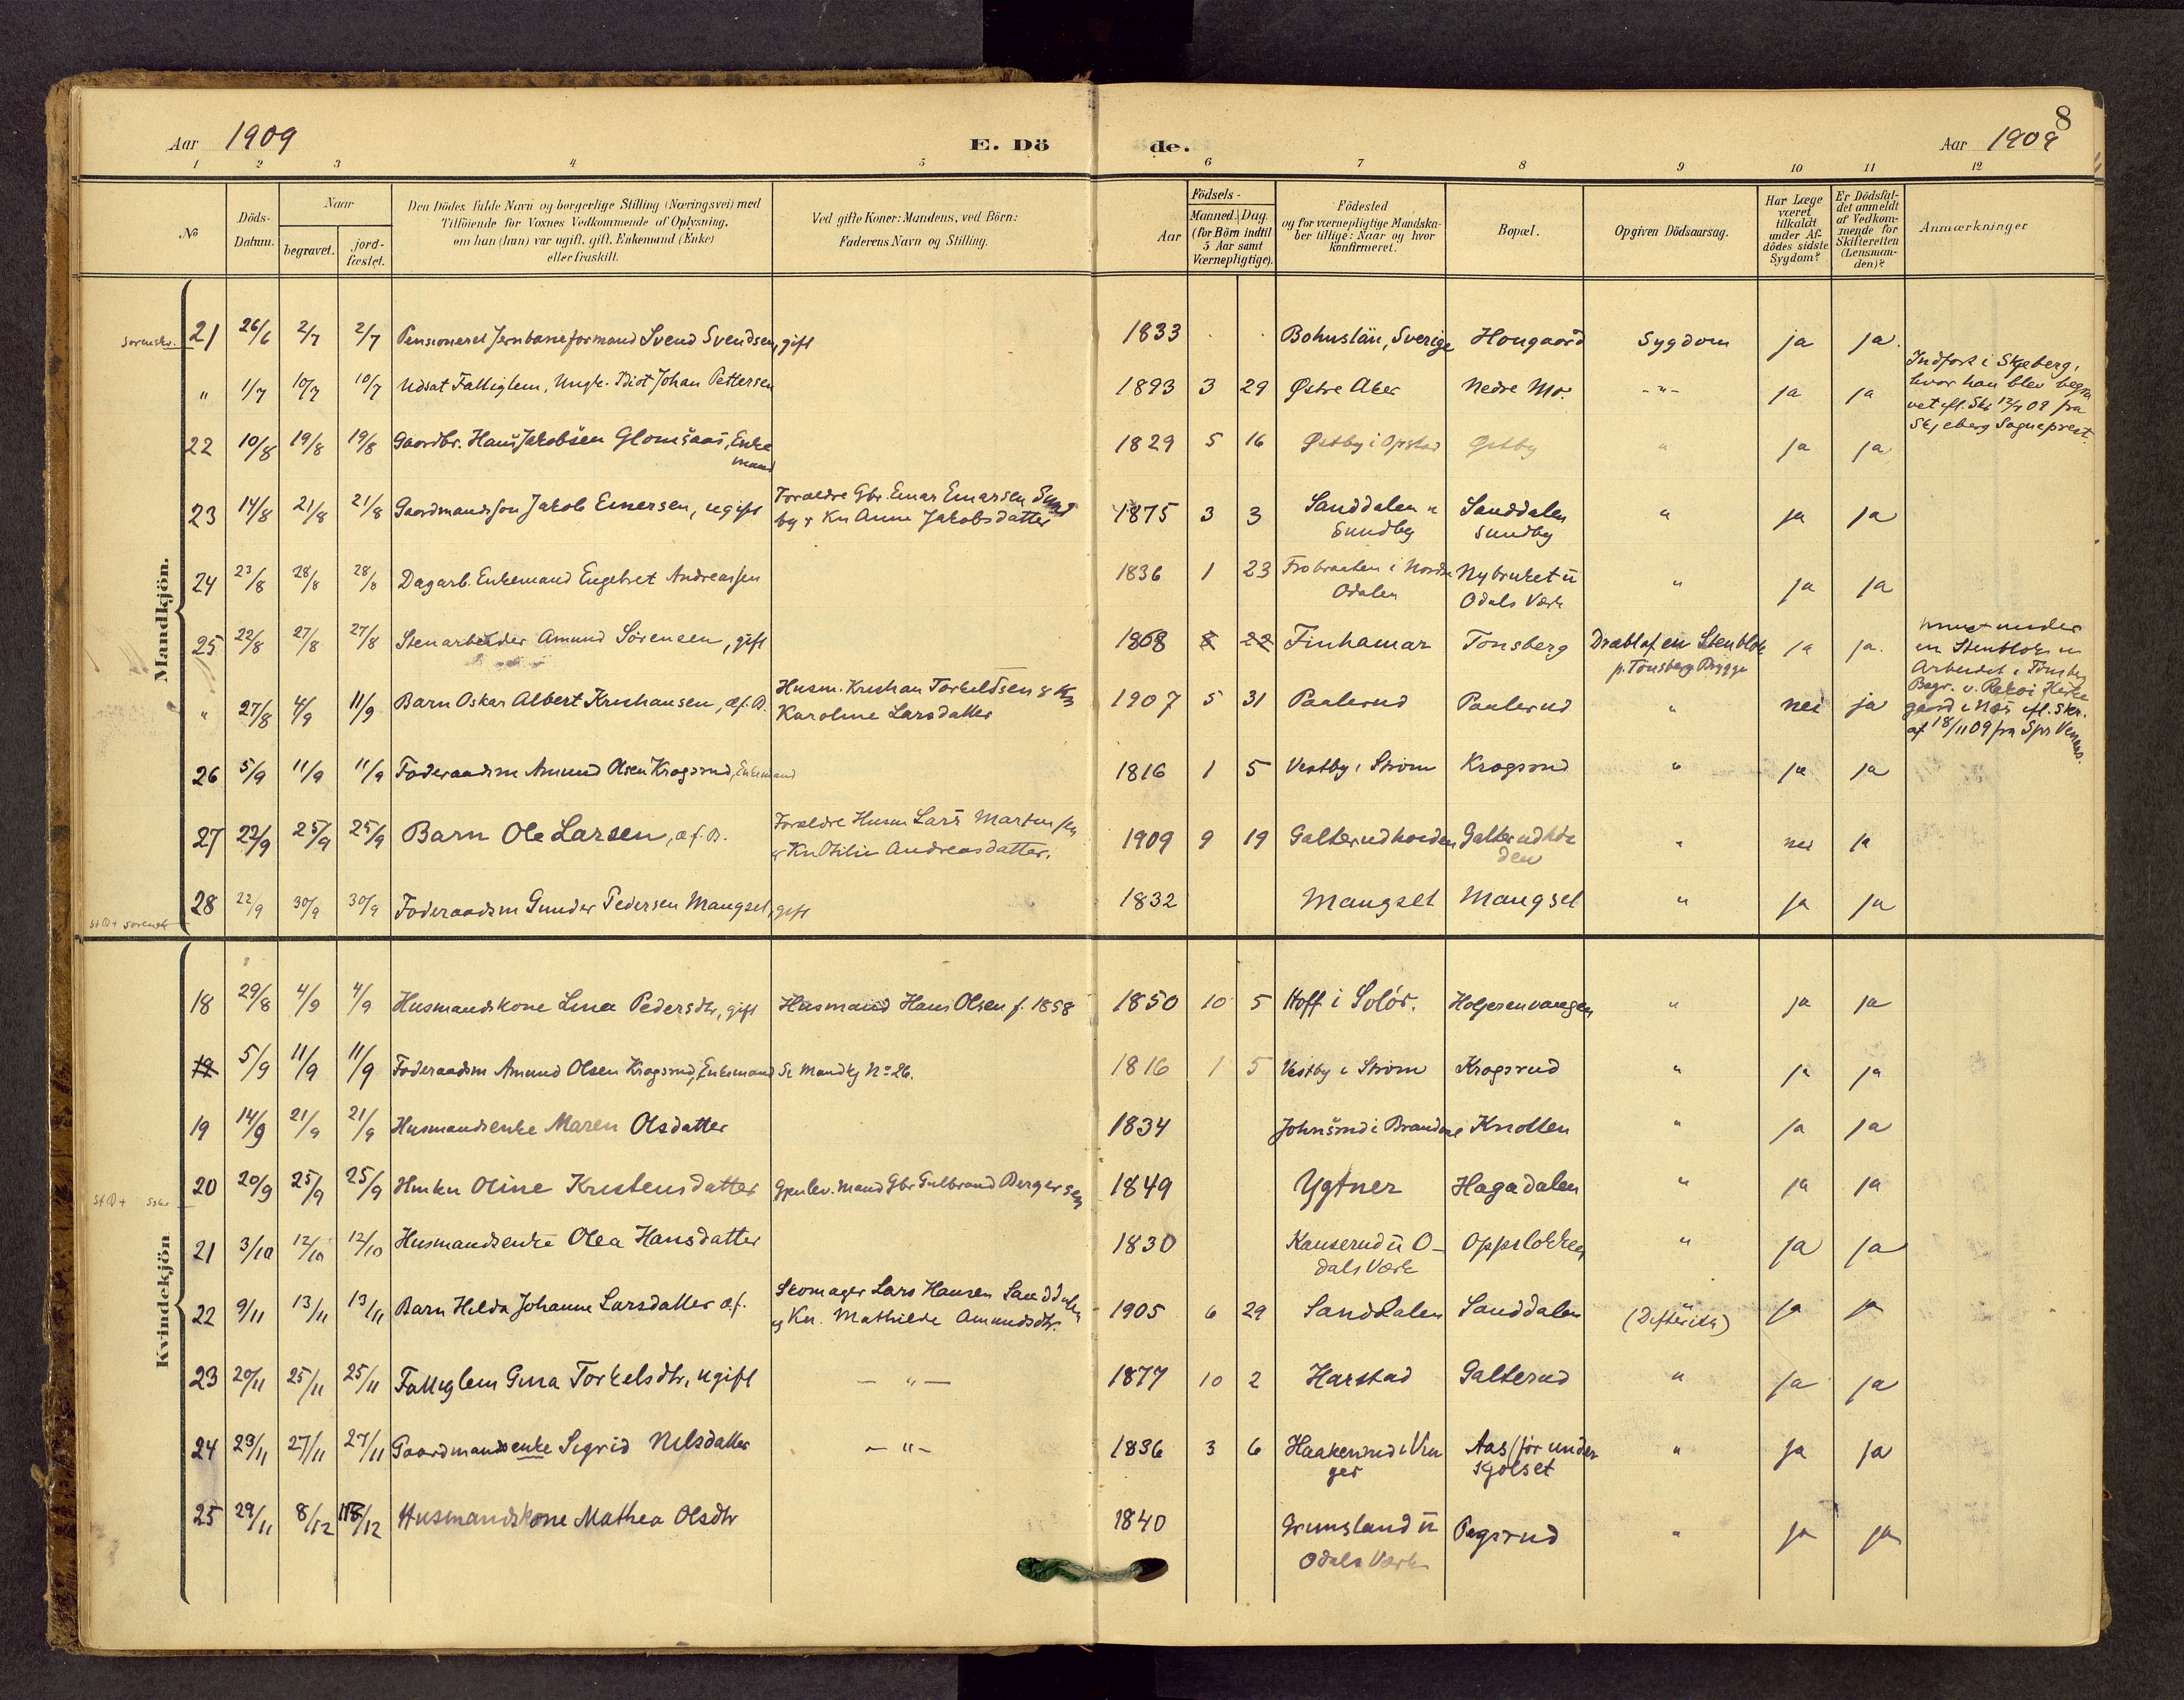 8
Aar 1909 E. Dö de. Aar 1909
1 2 3 4 5 6 7 8 9 10 11 12
№
Döds-Datum.
Naar
begravet.
jordfæstet.
Den Dödes fulde Navn og borgerlige Stilling (Næringsvei) med
Tilföiende for Voxnes Vedkommende af Oplysning,
om han (hun) var ugift, gift, Enkemand (Enke)
eller fraskilt.
Ved gifte Koner: Mandens, ved Börn:
Faderens Navn og Stilling.
Födsels-
Aar
Maaned. Dag.
(for Börn indtil
5 Aar samt
Værnepligtige).
Födested
og for værnepligtige Mandska-
ber tillige: Naar og hvor
konfirmeret.
Bopæl.
Opgiven Dödsaarsag.
Har Læge
været
tilkaldt
under Af-
dödes sidste
Sygdom?
Er Dödsfal-
det anmeldt
af Vedkom-
mende for
Skifteretten
(Lensman-
den)?
Anmærkninger
Mandkjön.
21 26/6 2/7 2/7 Pensioneret Jernbaneformand Svend Svendsen, gift 1833 Bohuslän, Sverige Hongaard Sygdom ja ja.
" 1/7 10/7 10/7 Udsat Fattiglem, Ungk. Idiot Johan Pettersen 1893 3 29 Østre Aker Nedre Mo. -"- ja ja
Indført i Skjeberg,
hvor han blev begra
vet efl. Skr 12/7 09 fra
Skjeberg Sogneprest.
22 10/8 19/8 19/8 Gaardbr. Hans Jakobsen Glomsaas, Enke
mand 1829 5 16 Østby i Opstad Østby " ja ja
23 14/8 21/8 21/8 Gaardmandsøn Jakob Einersen, ugift Forældre Gbr. Einar Einarsen Sund
by & Kn Anne Jakobsdatter 1875 3 3 Sanddalen u
Sundby Sanddalen
Sundby " ja ja
24 23/8 28/8 28/8 Dagarb. Enkemand Engebret Andreassen 1836 1 23 Frobraaten i Nordre
Odalen Nybruket u
Odals Værk " ja ja
25 22/8 27/8 27/8 Stenarbeider Amund Sørensen, gift 1868 8 22 Finhamar Tonsberg Dræbt af en Stenblok
p. Tonsberg Brygge ja ja.
under
en Stenblok u
Arbeidet i Tønsberg
" 27/8 4/9 11/9 Barn Oskar Albert Kristiansen, æf. B. Husm. Kristian Torkeldsen & Kn
Karoline Larsdatter 1907 5 31 Paalerud Paalerud " nei ja
Begr. v.
gaard i Næs efl. Skr.
af 18/11 09 fra Spr
26 5/9 11/9 11/9 Føderaadsm Amund Olsen Krogsrud, Enkemand 1816 1 5 Vestby i Strøm Krogsrud " ja ja
27 22/9 25/9 25/9 Barn Ole Larsen, æf. B. Forældre Husm Lars Martinsen
& Kn Otilie Andreasdatter. 1909 9 19 Galterudheden Galterudhe
den " nei ja
28 22/9 30/9 30/9 Føderaadsm Gunder Pedersen Mangset, gift 1832 Mangset Mangset " ja ja
Kvindekjön
18 29/8 4/9 4/9 Husmandskone Lina Pedersdtr, gift Husmand Hans Olsen f. 1858 1850 10 5 Hoff i Solør. Holgerenvangen " ja ja
19 5/9 11/9 11/9 Føderaadsm Amund Olsen Krogsrud, Enkemand Se Mandkj No 26. 1816 1 5 Vestby i Strøm Krogsrud " ja ja
19 14/9 21/9 21/9 Husmandsenke Maren Olsdatter 1834 Johnsrud i Brandval Knolten " ja ja
20 20/9 25/9 25/9 Hmkn Oline Kristensdatter Gjenlev. Mand Gbr Gulbrand Bergersen 1849 Ygtner Hagadalen " ja ja
21 3/10 12/10 12/10 Husmandsenke Olea Hansdatter 1830 Kauserud u O-
dals Værk Oppsløkken " ja ja
22 9/11 13/11 13/11 Barn Hilda Johanne Larsdatter æf. Skomager Lars Hansen Sanddalen
og Kn. Mathilde Amundsdtr. 1905 6 29 Sanddalen Sanddalen "
(Difterita) ja ja
23 20/11 25/11 25/11 Fattiglem Gina Torkelsdtr, ugift — " — 1877 10 2 Harstad Galterud " ja ja
24 23/11 27/11 27/11 Gaardmandsenke Sigrid Nilsdatter — " — 1836 3 6 Haakenrud i Vin
ger Aas (før under
Kjølset " ja ja
25 29/11 8/12 18/12 Husmandskone Mathea Olsdtr 1840 Grunsland u
Odals Værk Pegsrud " ja ja